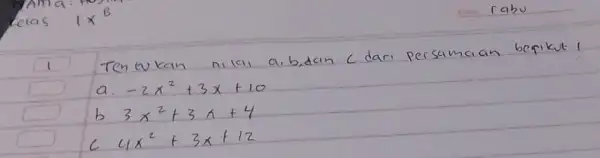 Rabu
kelas IX B
1 Tentukan nilai a, b, dan c dari persamaan berikut !
a. -2x² + 3x + 10
b 3x² + 3x + 4
c 4x² + 3x + 12